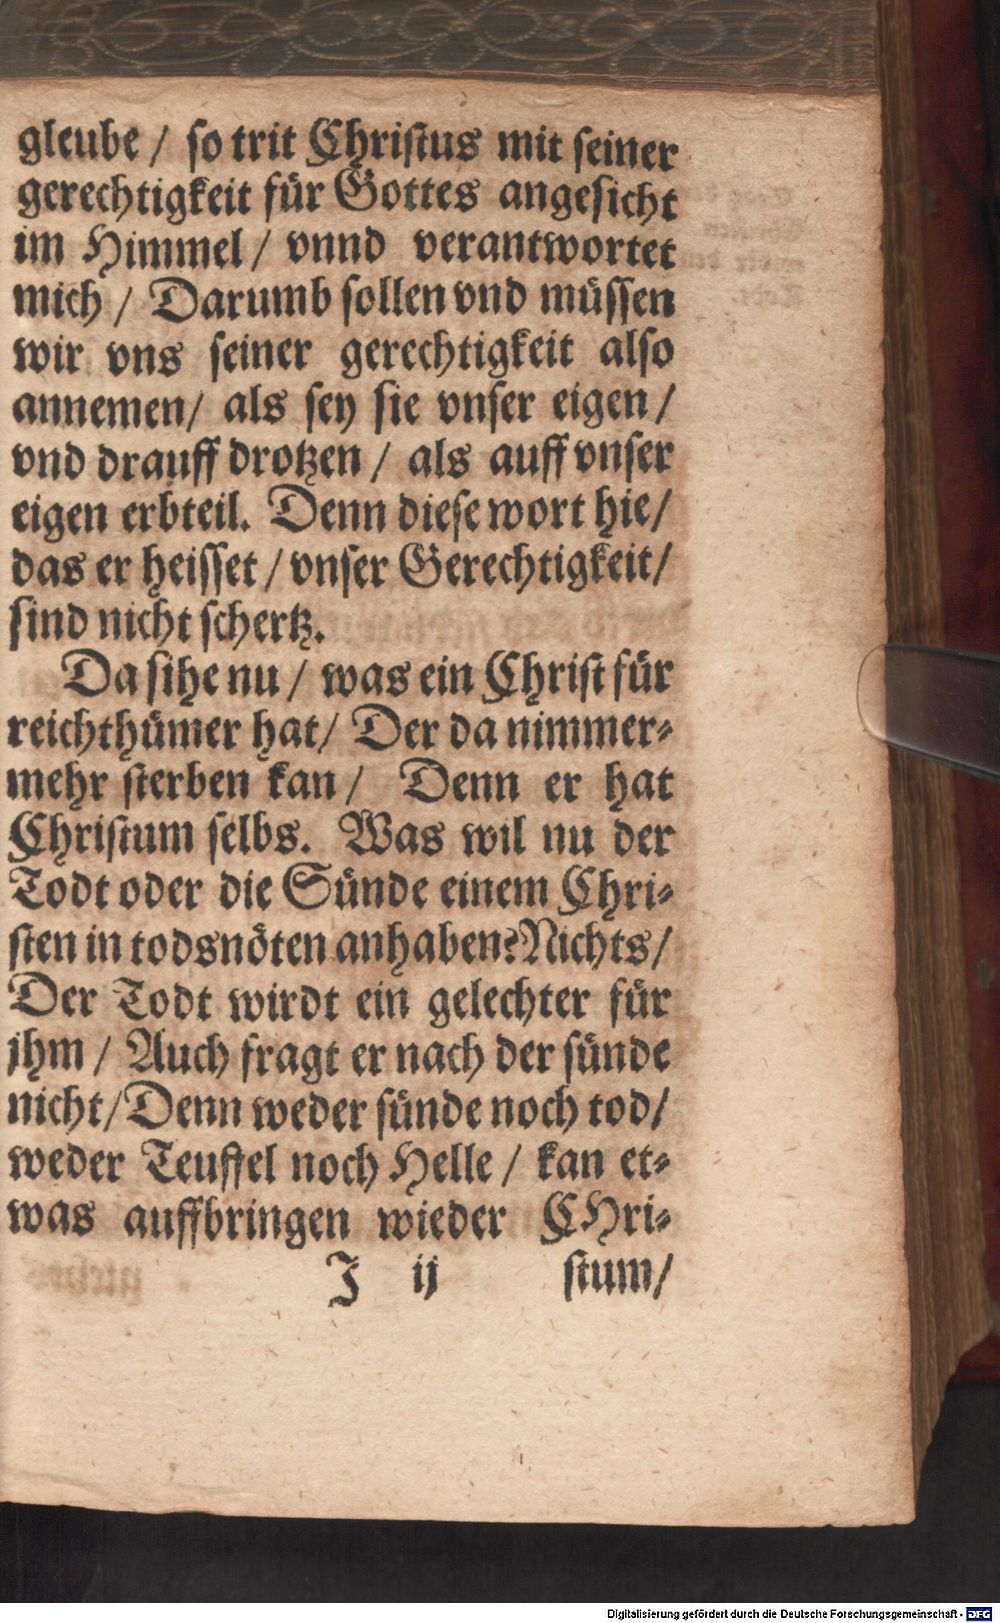 gleube / so trit Christus mit seiner
gerechtigkeit für Gottes angesicht
im Himmel / vnnd verantwortet
mich / Darumb sollen vnd müssen
wir vns seiner gerechtigkeit also
annemen / als sey sie vnser eigen /
vnd drauff drotzen / als auff vnser
eigen erbteil. Denn diese wort hie /
das er heisset / vnser Gerechtigkeit /
sind nicht schertz.
Da sihe nu / was ein Christ für
reichthümer hat / Der da nimmer⸗
mehr sterben kan / Denn er hat
Christum selbs. Was wil nu der
Todt oder die Sünde einem Chri⸗
sten in todsnöten anhaben? Nichts /
Der Todt wirdt ein gelechter für
jhm / Auch fragt er nach der sünde
nicht / Denn weder sünde noch tod /
weder Teuffel noch Helle / kan et⸗
was auffbringen wieder CHri⸗
J ij stum /
Digitalisierung gefördert durch die Deutsche Forschungsgemeinschaft - DFG